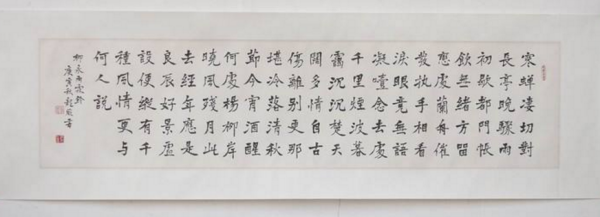 寒蟬凄切對
長亭晚驟雨
初歇都門帳
飲無緒方留
戀處蘭舟催
發執手相看
淚眼竟無語
凝噎念去去
千里煙波暮
靄沉沉楚天
闊多情自古
傷離別更那
堪冷落清秋
節今宵酒醒
何處楊柳岸
曉風殘月此
去經年應是
良辰好景虛
設便縱有千
種風情更與
何人說
柳永雨霖鈴
庚寅秋書